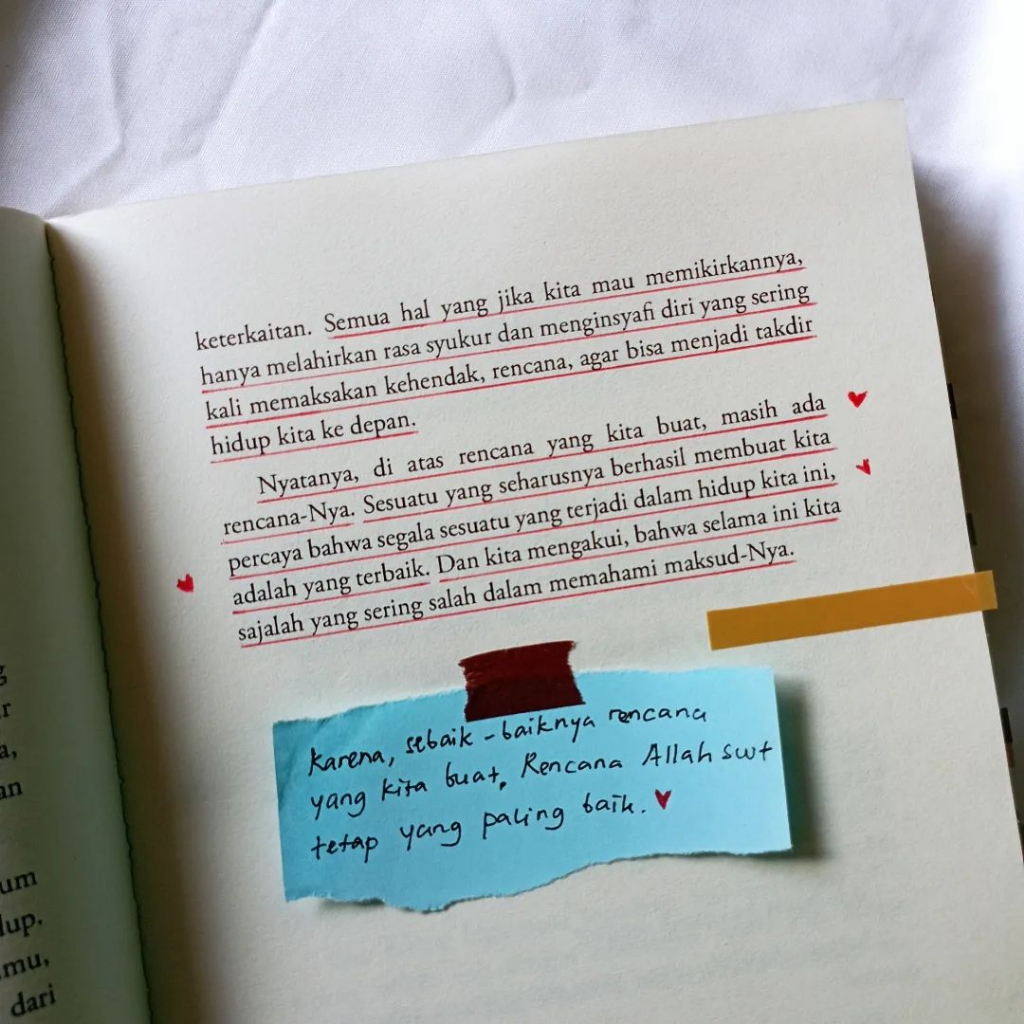 keterkaitan. Semua hal yang jika kita mau memikirkannya,
hanya melahirkan rasa syukur dan menginsyafi diri yang sering
kali memaksakan kehendak, rencana, agar bisa menjadi takdir
hidup kita ke depan.
Nyatanya, di atas rencana yang kita buat, masih ada
rencana-Nya. Sesuatu yang seharusnya berhasil membuat kita
percaya bahwa segala sesuatu yang terjadi dalam hidup kita ini,
adalah yang terbaik. Dan kita mengakui, bahwa selama ini kita
sajalah yang sering salah dalam memahami maksud-Nya.
Karena, sebaik-baiknya rencana
yang kita buat, Rencana Allah swt
tetap yang paling baik.